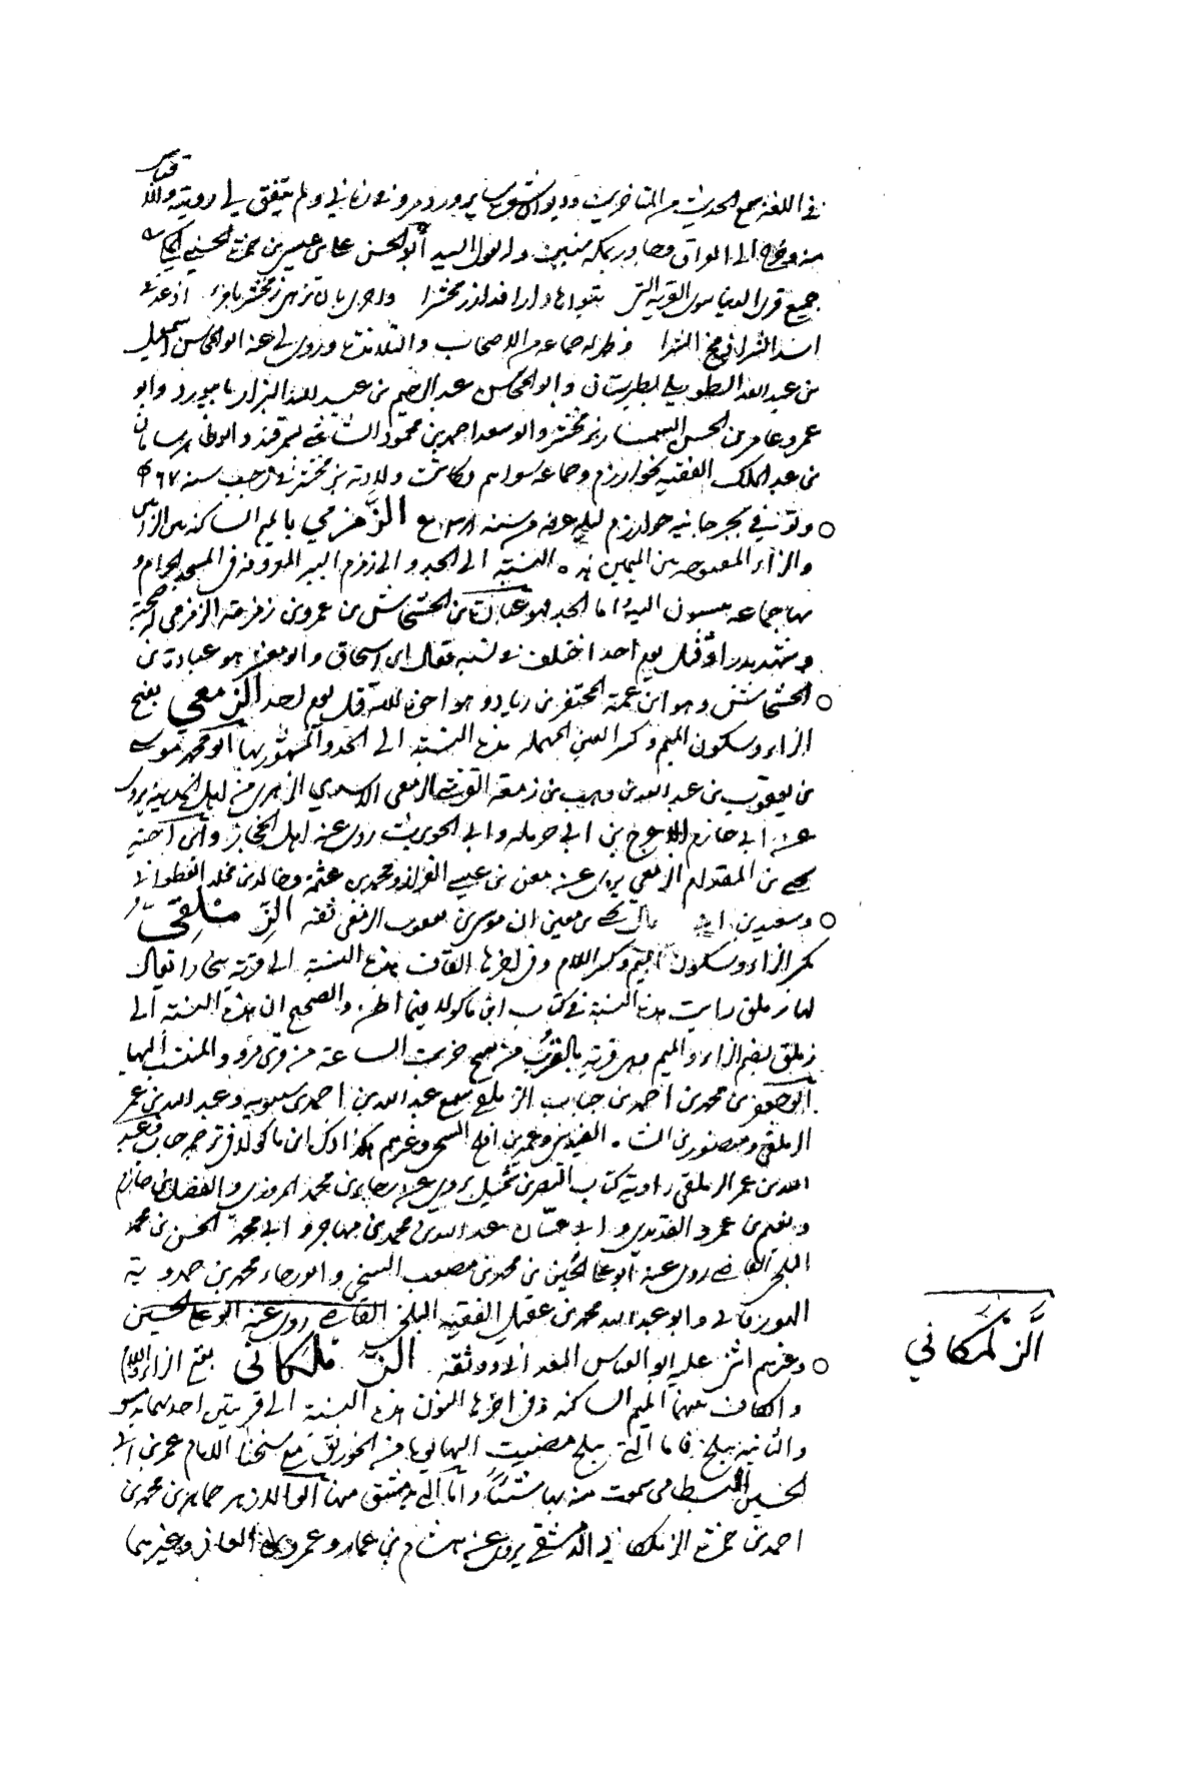 في اللغة سمع الحديث من المتأخرين وديوان شعره ساير ورد مرو في زماني ولم يتفق لي رويته والاقتباس
منه وخرج الى العراق وجاور بمكة سنين السيد أبو الحسن علي بن عيسى بن حمزة الحسني المكي
جميع قرى الدنيا سوى القرية التي تبواها دارا فداء زمخشرا واحرى بان تزهى زمخشر بامرئ اذا عد في
اسد الشرى زمخ الشرا وظهر له جماعة من الاصحاب والتلامذة وروى لي عنه ابو المحاسن اسمعيل
بن عبد الله الطويلي بطبرستان وابو المحاسن عبد الرحيم بن عبد الله البزاز بابيورد وابو
عمرو عامر بن الحسن السمسار بزمخشر وابو سعد احمد بن محمود الشاتي بسمرقند وابو طاهر سامان
بن عبد الملك الفقيه بخوارزم وجماعة سواهم وكانت ولادته بزمخشر في رجب سنة ٤٦٧
وتوفي بجرجانية خوارزم ليلة عرفة من سنة الزمزمي بالميم الساكنة بين الزائين
والزاء المفتوحة بين الميمين هذه النسبة الى الجد والى زمزم البير المعروفة في المسجد الحرام و
بها جماعة ينسبون اليه اما الجد فهو عبادة بن الخشخاش بن عمرو بن زمزمة الزمزمي له صحبة
وشهد بدرا وقتل يوم احد اختلف في نسبه فقال ابن اسحاق وابو معشر هو عبادة بن
الخشخاش وهو ابن عمة المجذر بن زياد وهو اخوه لامه قتل يوم احد الزمعي بفتح
الزاء وسكون الميم وكسر العين المهملة هذه النسبة الى الجد والمشهور بها ابو محمد موسى
بن يعقوب بن عبد الله بن وهب بن زمعة القرشي الزمعي الاسدي الزهري من اهل المدينة يروي
عن ابي حازم الاعرج بن ابي حرملة وابي الحويرث روى عنه اهل الحجاز وابن اخته
يحيى بن المقدام الزمعي يروي عنه معن بن عيسى القزاز ومحمد بن عثمة وخالد بن مخلد القطواني
وسعيد بن ابي قال يحيى بن معين ان موسى بن يعقوب الزمعي ثقة الزِّمْلِقي
بكسر الزاء وسكون الميم وكسر اللام وفي اخرها القاف هذه النسبة الى قرية ببخارا يقال
لها زملق رايت هذه النسبة في كتاب ابن ماكولا فيما اظن والصحيح ان هذه النسبة الى
زملق بضم الزاء والميم وهي قرية بالقرب من سنج خربت الساعة من قرى مرو والمنتسب اليها
ابو جعفر بن محمد بن احمد بن حباب الزملقي سمع عبد الله بن احمد بن شبويه وعبد الله بن عمر
الزملقي ومنصور بن الشاه وعمر بن افلح السنجي وغيرهم هكذا ذكر ابن ماكولا في ترجمة حباب وعبد
الله بن عمر الزملقي راوية كتاب النضر بن شميل يروي عن رجاء بن محمد المروزي والفضل بن خازم
ونعيم بن عمرو القديدي وابي عتاب عبد الله بن محمد بن مهاجر وابي محمد الحسن بن محمد
البلخي القاضي روى عنه ابو علي الحسين بن محمد بن مصعب السنجي وابو رجاء محمد بن حمدوية
الهورقاني وابو عبد الله محمد بن عقيل الفقيه البلخي القاضي روى عنه ابو علي الحسين
وغيرهم اثنى عليه ابو العباس المعداني ووثقه الزملكاني بفتح الزاء واللام
والكاف بينهما الميم الساكنة وفي اخرها النون هذه النسبة الى قريتين احديهما بدمشق
والثانية ببلخ فاما التي ببلخ مضيت اليها يوما من الخورنق مع شيخنا الامام عمر بن ابي
الحسن البسطامي سمعت منه بها شيئا واما التي بدمشق منها ابو الازهر جماهر بن محمد بن
احمد بن حمزة الزملكاني الدمشقي يروي عنه هشام بن عمار وعمرو بن الغاز وغيرهما
الزَّمْلَكاني